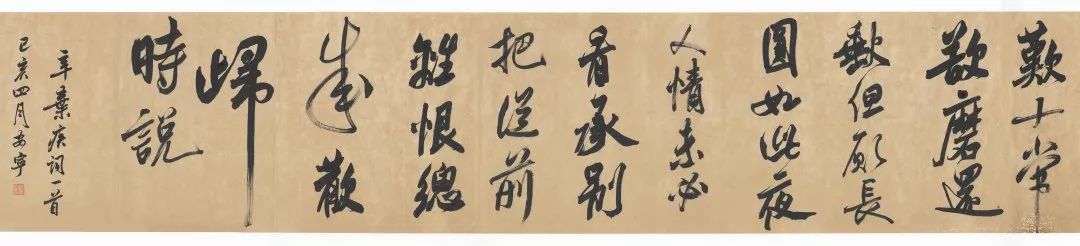 歎十常
欲磨還
缺但願長
圓如此夜
人情未必
看承別
把從前
離恨總
成歡
歸
時說
辛棄疾詞一首
己亥四月安寧